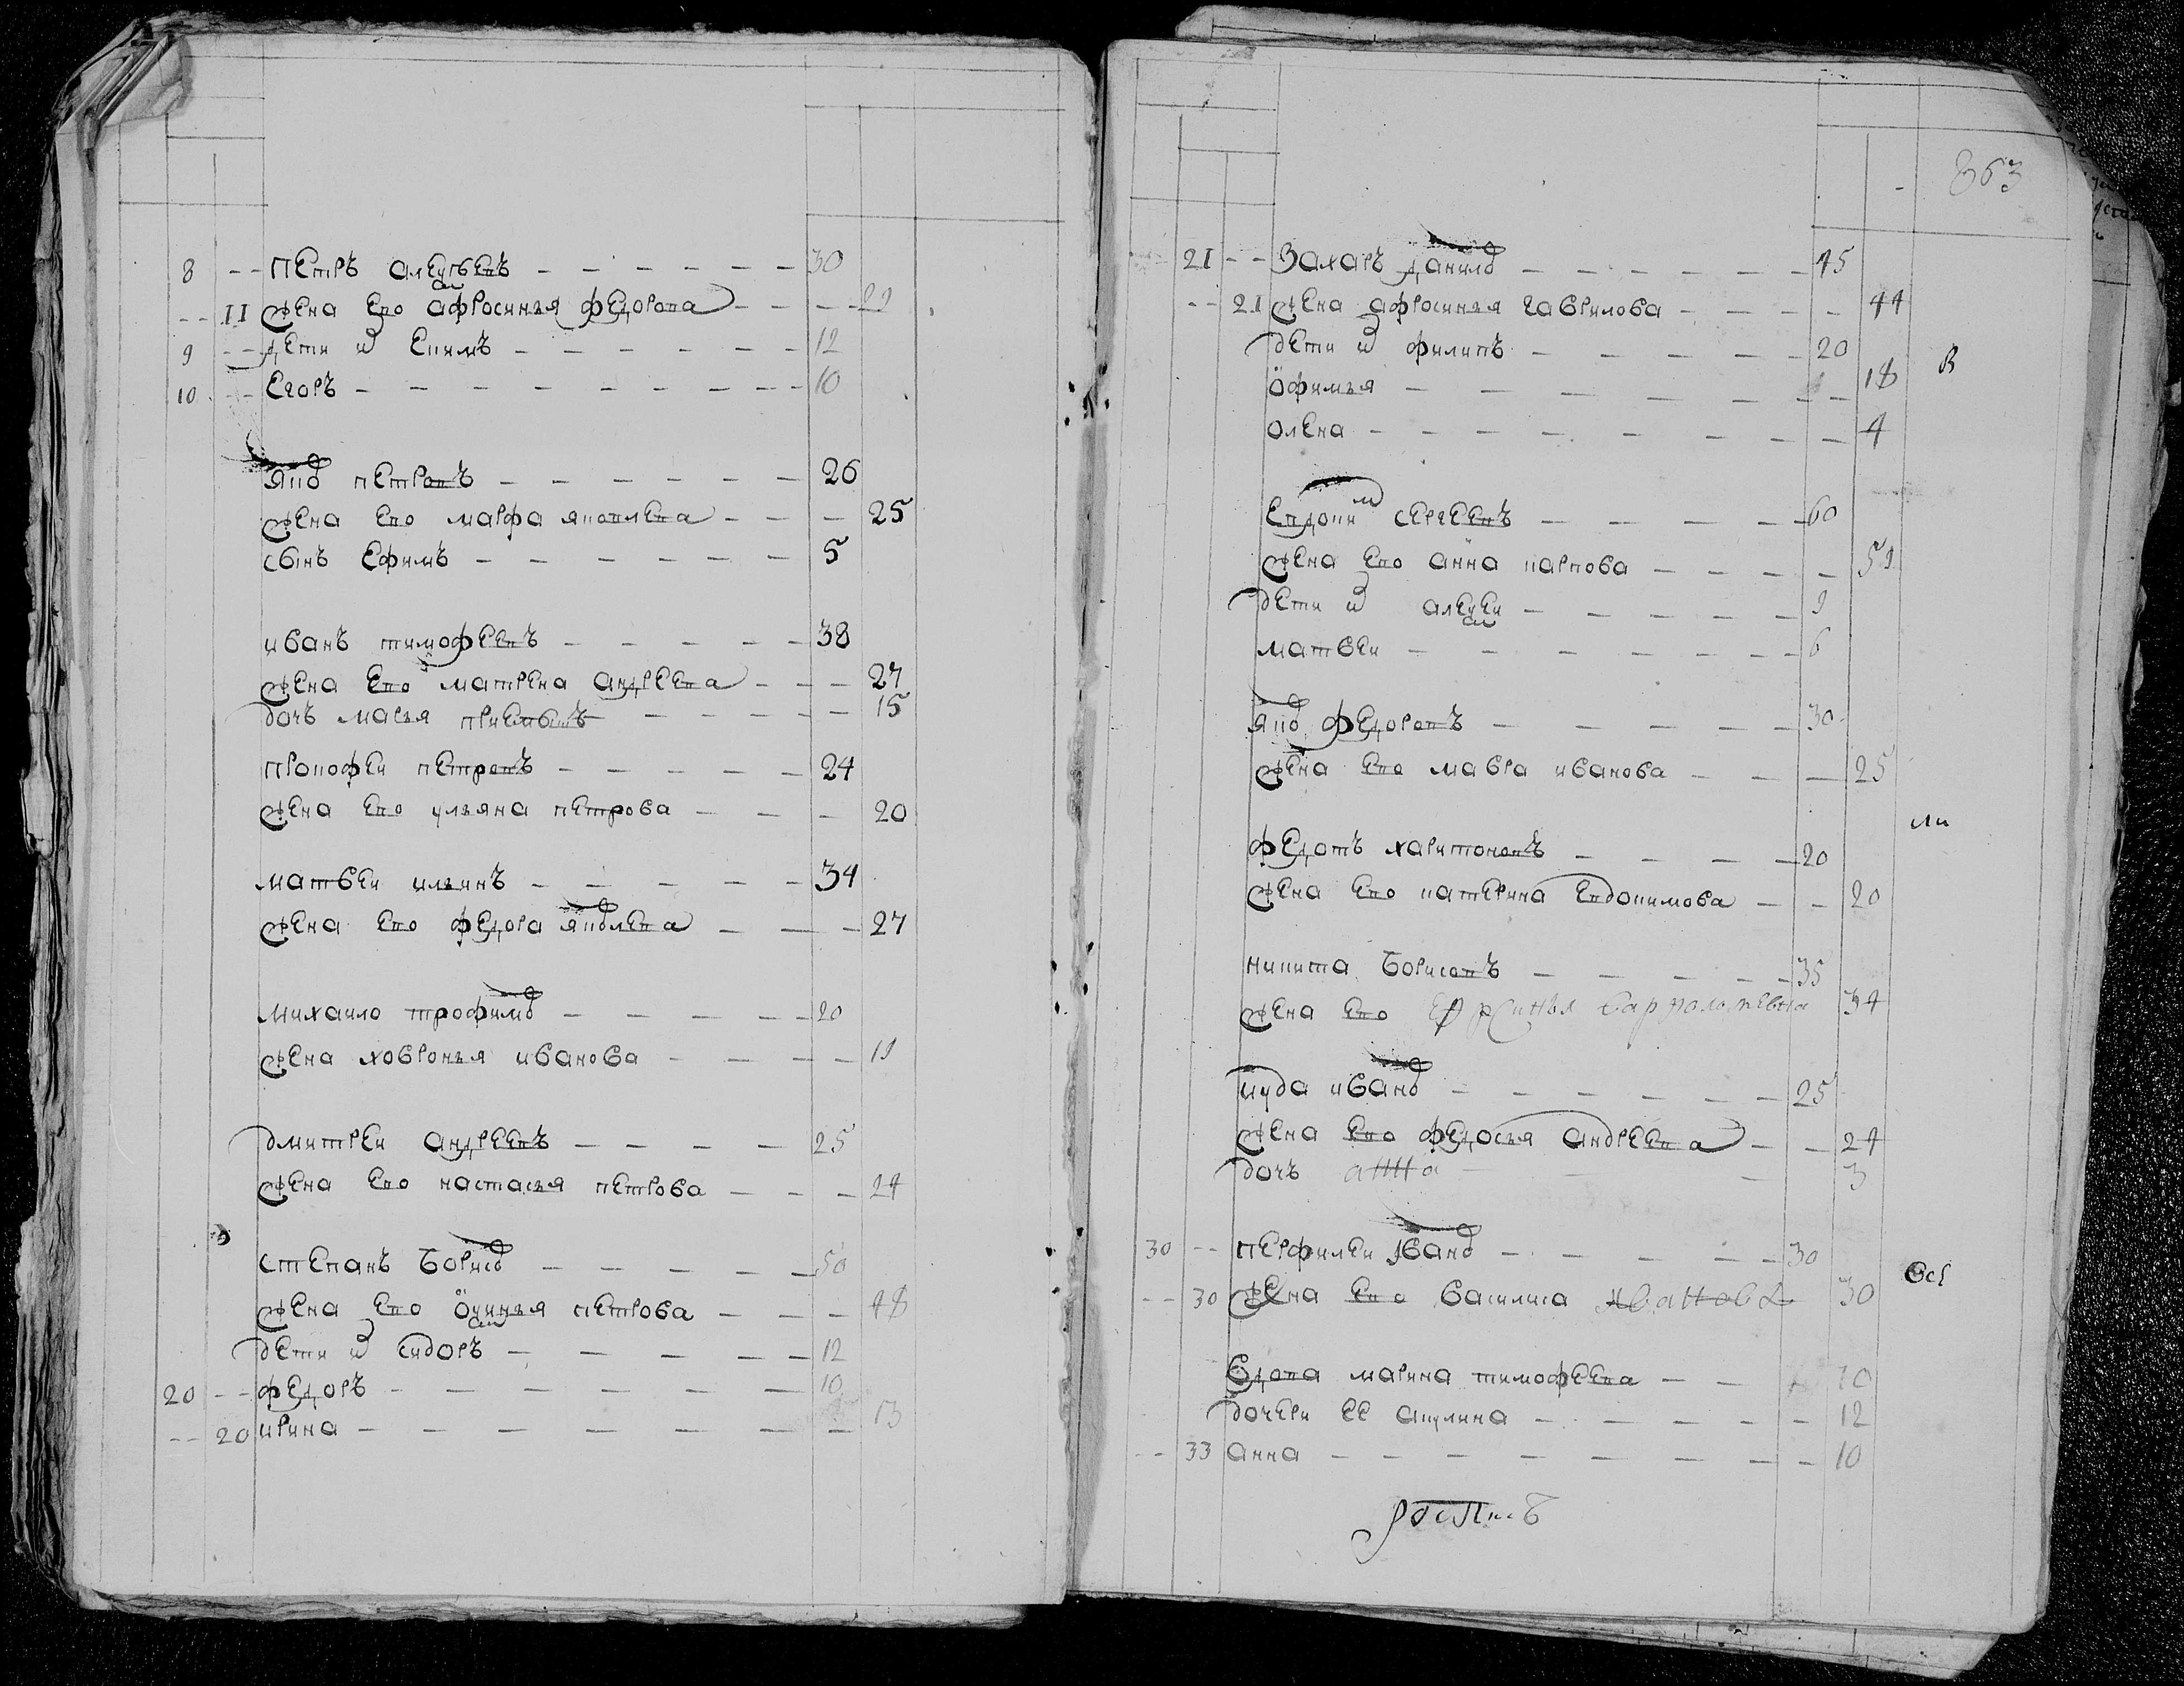 8 -- петръ алеѯѣевъ 30
-- 11 жена ево афросинья федорова 29
9 -- дети их екимъ 12
10 -- егоръ 10
яков петровъ 26
жена ево марфа яковлева 25
сынъ ефимъ 5
иванъ тимофеевъ 38
жена ево матрена андреева 27
дочь марья 15
прокофеи петровъ 24
жена ево ульяна петрова 20
матвеи ильинъ 34
жена ево федора яковлева 27
михаило трофимов 20
жена ховронья иванова 19
дмитреи андреевъ 25
жена ево настасья петрова 24
степанъ борисов 50
жена ево оѯинья петрова 48
дети их сидоръ 12
20 -- федоръ 10
-- 20 ирина 13
863
21 -- захаръ данилов 45
-- 21 жена афросинья гаврилова 44
дети их филипъ 20
офимья 18
олена 4
В
евдоким сергеевъ 60
жена ево анна карпова 59
дети их алеѯеи 9
матвеи 6
яков федоровъ 30
жена ево мавра иванова 25
ли
федотъ харитоновъ 20
жена ево катерина евдокимова 20
никита борисовъ 35
жена ево ефрсинья варфоломѣевна 34
иуда иванов 25
жена ево федосья андреева 24
дочь анна 3
30 -- перфилеи иванов 30
-- 30 жена ево василиса иванова 30
всѣ
вдова марина тимофеева 70
дочери ее акулина 12
-- 33 анна 10
роспись